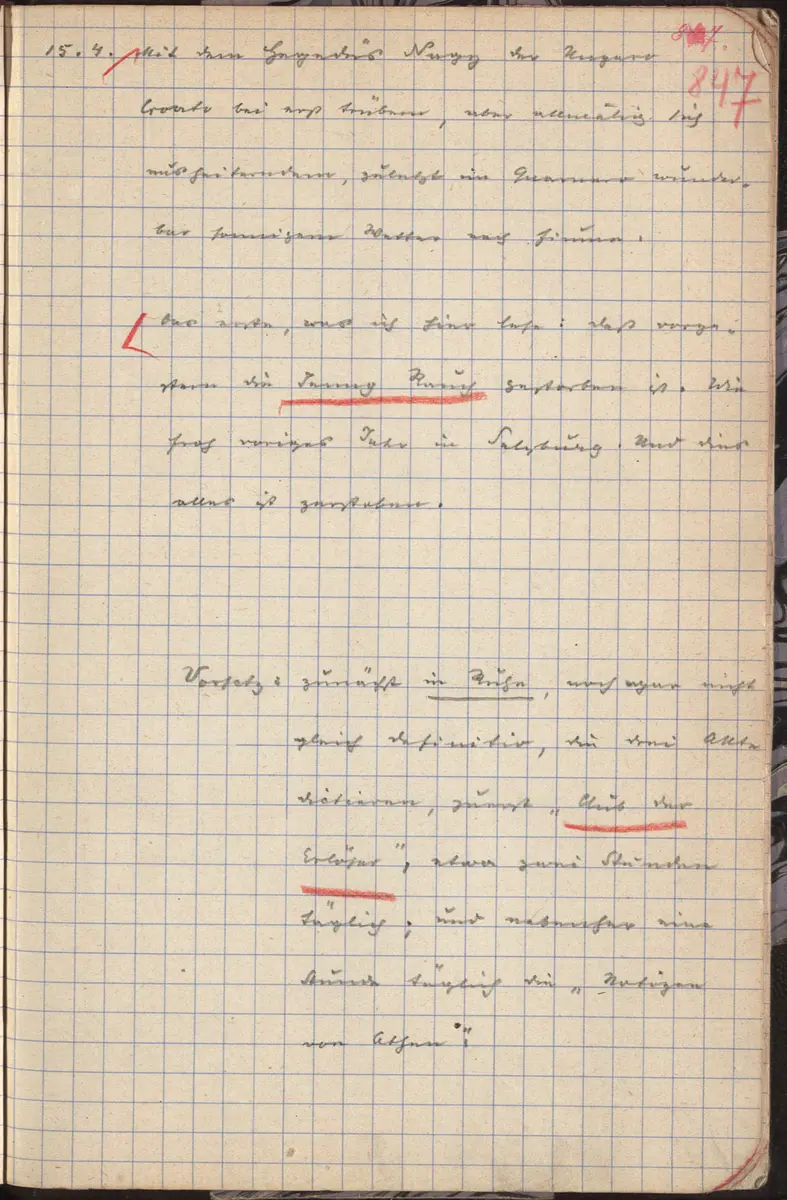 847.
847
15.4. Mit dem Hegedüs Nagy der Ungaro
Croata bei erst trübem, aber allmälig sich
ausheiterndem, zuletzt im Quarnero wunder-
bar sonnigem Wetter nach Fiume.
Das erste, was ich hier lese: daß vorge-
stern die Jenny Rauch gestorben ist. Wie
froh voriges Jahr in Salzburg. Und dies
alles ist zerstoben.
Vorsatz: zunächst in Ruhe, noch gar nicht
gleich definitiv, die drei Akte
dictieren, zuerst „Club der
Erlöser“, etwa zwei Stunden
täglich; und nebenher eine
Stunde täglich die „Notizen
von Athen“.